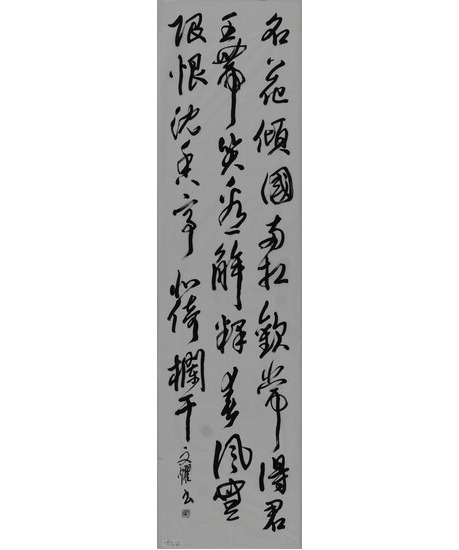 名花傾國兩相歡常得君
王帶笑看解釋春風無
限恨沈香亭北倚欄干
文燿書